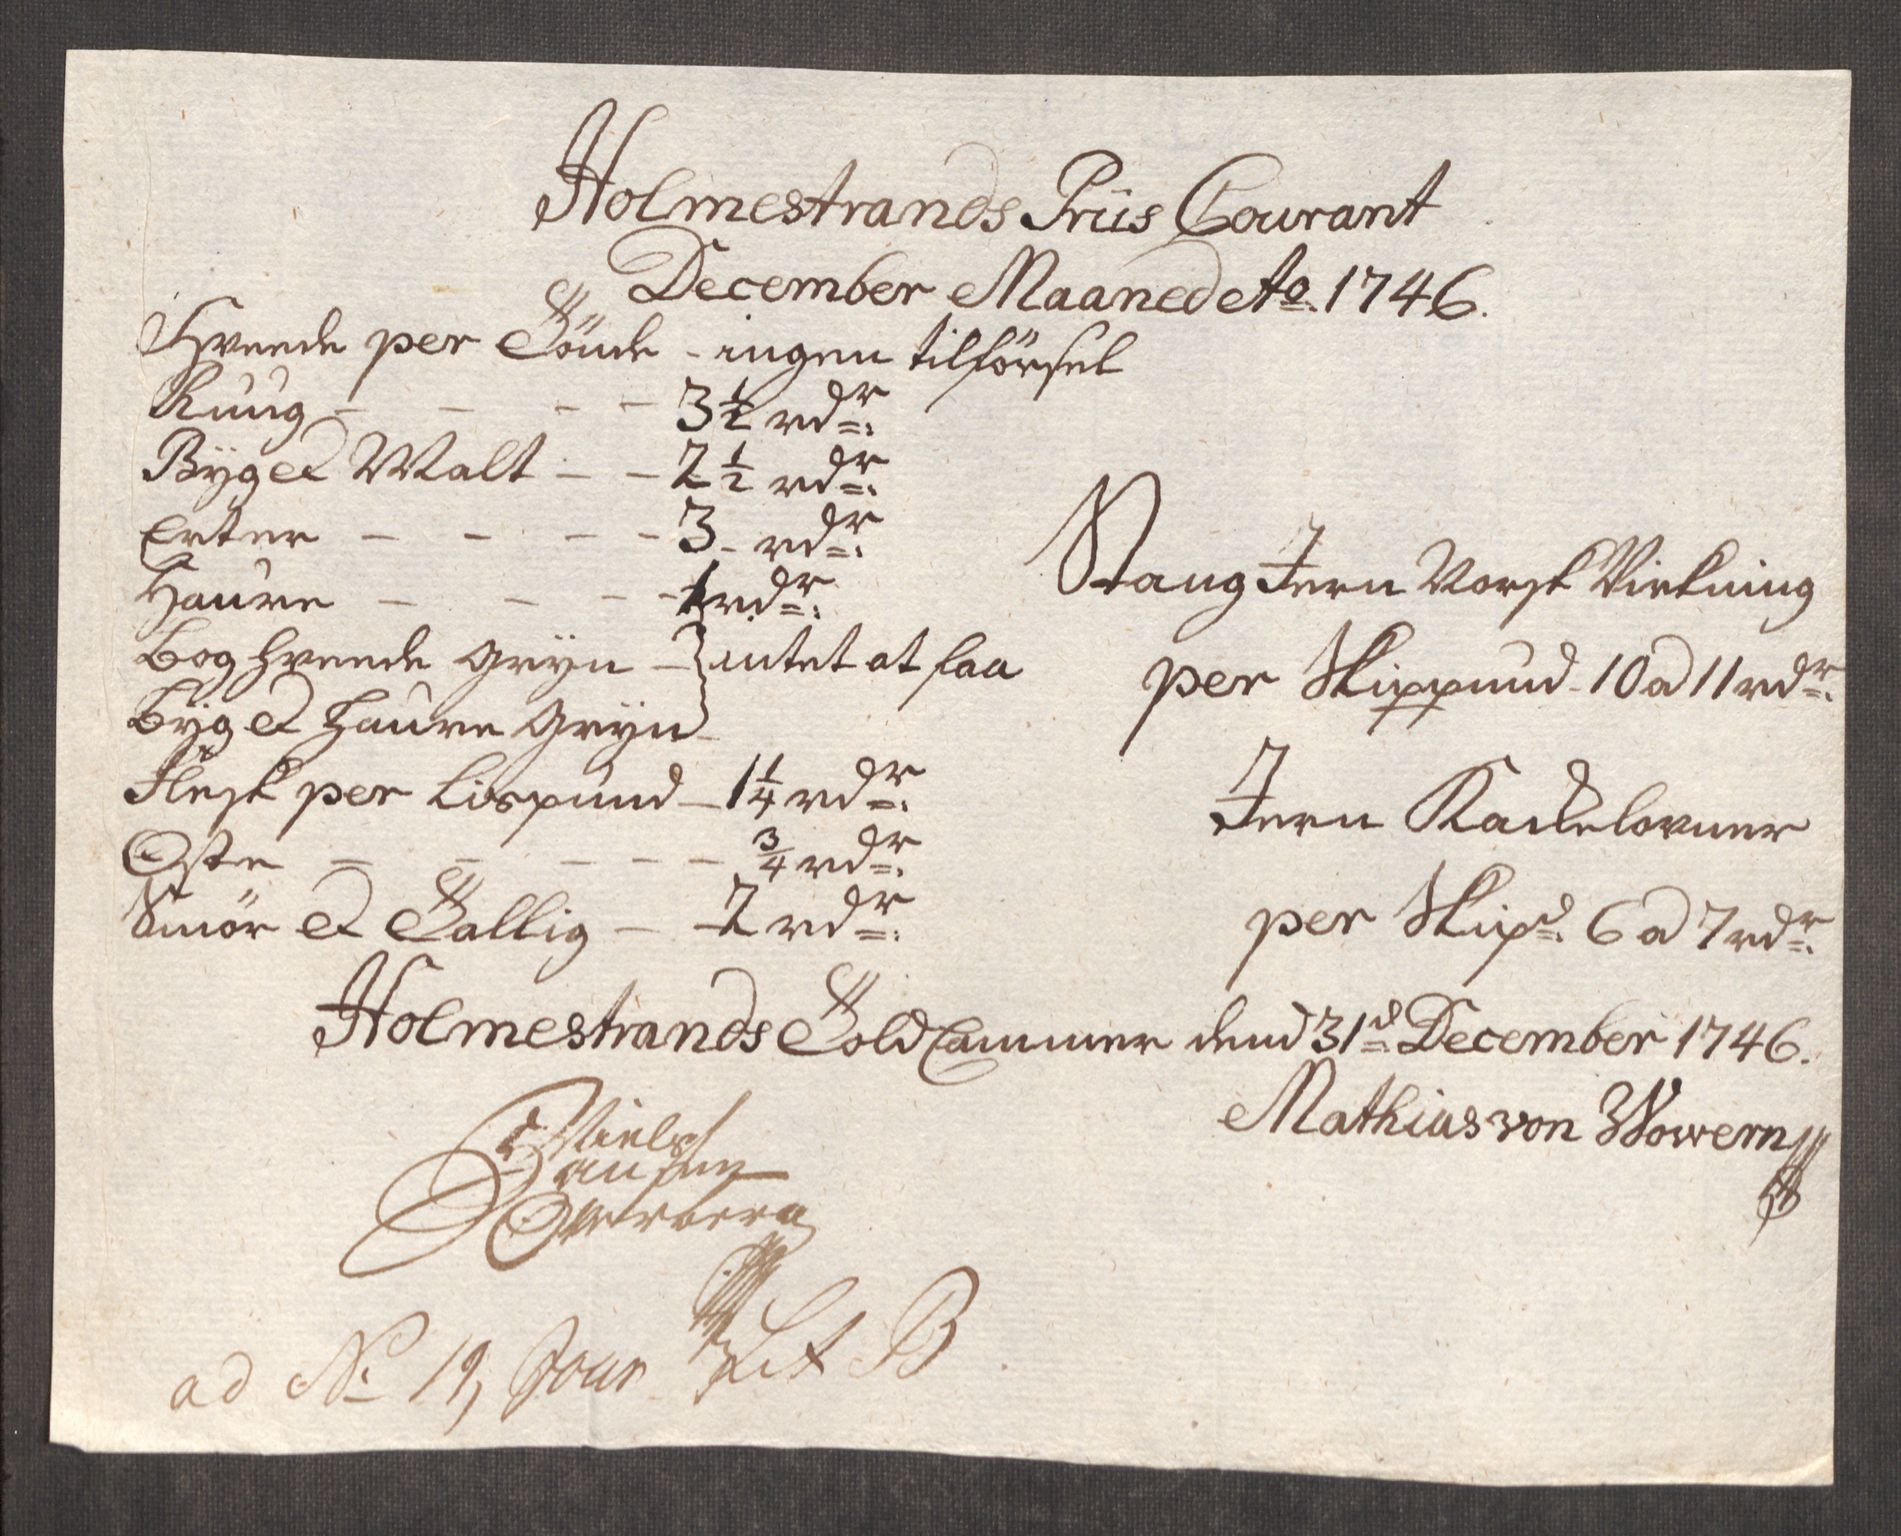 Holmestrands Priis Courant
December Maaned Ao. 1746.
Hveede per Tönde - ingen tilförsel
Ruug - - - - 3 1/2 rdr:
Byg et Malt - - 2 1/2 rdr:
Erter - - - - 3 - rdr:
Haure - - - - 1 rdr:
Boghveede Gryn - } intet at faa
Byg et Haure Gryn
Flesk per Lispund - 1 1/4 rdr:
Oste - - - - - 3/4 rdr:
Smör et Tallig - - 2 rdr:
Stang Jern Norsk Virkning
per Skippund - 10 a 11 rdr:
Jern Kackelovner
per Skipd: 6 a 7 rdr:
Holmestrands Told Cammer dend 31d December 1746.
Mathias von Wowern
Niels
Hansen
Overberg
ad No 19, Jour Lit B